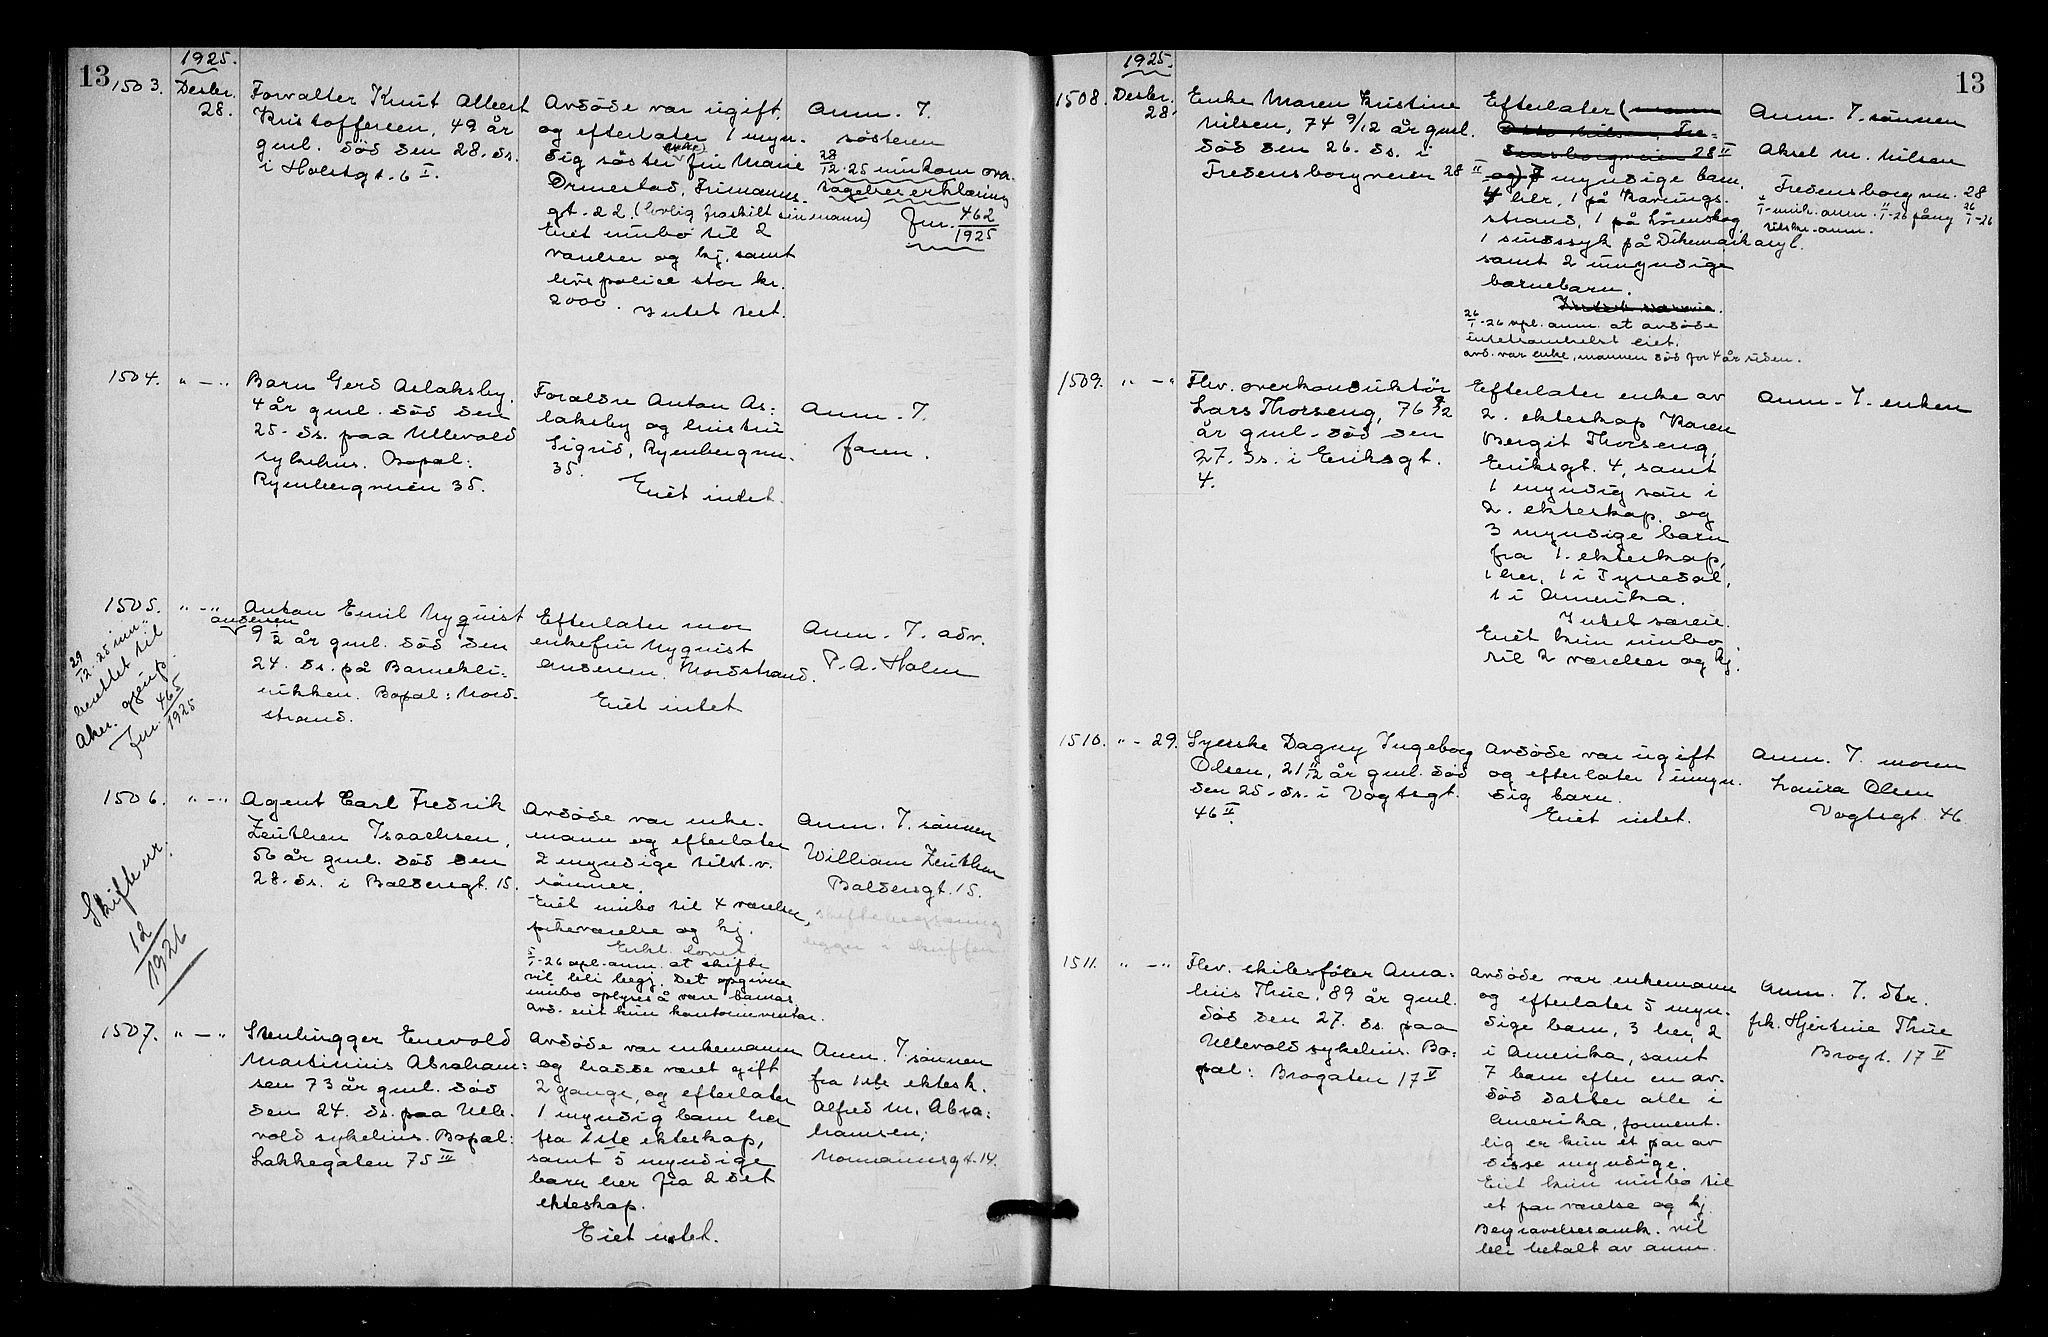 13
1925.
1503. Desbr. 28.
Forvalter Knut Albert
Kristoffersen, 49 år
gml. död den 28. ds.
i Holstgt. 6 I.
Avdöde var ugift,
og efterlater 1 myn-
dig söster fru Marie
Ormestad, Frimanns-
gt. 22. (lovlig fraskilt sin mann)
Eiet innbo til 2
værelser og kj. samt
livspolice stor kr.
2000. Intet test.
Anm. T.
søsteren
28/12-25 innkom ova-
tagelseserklæring
Jnr. 462/1925
1504. " — "
Barn Gerd Aslaksby,
4 år gml. död den
25. ds. paa Ullevold
sykehus. Bopæl:
Ryenbergveien 35.
Forældre Anton As-
laksby og hustru
Sigrid, Ryenbergvn.
35.
Eiet intet.
Anm. T.
faren.
1505. " — "
Anton Emil Nyquist
Andersen
9 /12 år gml. död den
24. ds. på Barnekli-
nikken. Bopæl: Nord-
strand.
Efterlater mor
enkefru Nyquist
Andersen, Nordstrand.
Eiet intet
Anm. T. adv.
P. A. Holm
29/12-25 inn-
berettet til
Aker
Jnr. 465/1925
1506. " — "
Agent Carl Fredrik
Zeuthen Isaachsen,
56 år gml. död den
28. ds. i Baldersgt. 15.
Avdöde var enke-
mann og efterlater
2 myndige tilst. v.
sønner.
Eiet innbo til 4 værelser,
pikeværelse og kj.
5/1-26 opl. anm. at skifte
vil bli begj. Det opgivne
innbo oplyses å være barnas,
avd. eiet kun kontorinventar.
Anm. T. sønnen
William Zeuthen
Baldersgt. 15.
skiftebegjæring
ligger i skuffen
Skifte nr.
12/1926
1507. " — "
Stenhugger Enevold
Martinius Abraham-
sen 73 år gml. död
den 24. ds. paa Ulle-
vold sykehus. Bopæl:
Lakkegaten 75 III
Avdöde var enkemann
og hadde været gift
2 gange, og efterlater
1 myndig barn her
fra 1ste ekteskap,
samt 5 myndige
barn her fra 2det
ekteskap.
Eiet intet.
Anm. T. sønnen
fra 1ste ektesk.
Alfred M. Abra-
hamsen,
Normannsgt. 14.
1925.
13
1508. Desbr. 28.
Enke Maren Kristine
Nilsen, 74 9/12 år gml.
död den 26. ds. i
Fredensborgveien 28 II
Efterlater
7 myndige barn,
4 her, 1 på Kavrings-
strand, 1 på Lörenskog,
1 sindssyk på Dikemark asyl.
samt 2 umyndige
barnebarn.
26/1-26 opl. anm. at avdöde
intetsomhelst eiet.
avd. var enke, mannen död for 4 år siden.
Anm. T. sønnen
Aksel M. Nilsen
Fredensborgvn. 28
1509. " — "
Fhv. overkonduktör
Lars Thorseng, 76 /12
år gml. död den
27. ds. i Eriksgt.
4.
Efterlater enke av
2. ekteskap Karen
Bergit Thorseng,
Eriksgt. 4, samt
1 myndig sön i
2. ekteskap og
3 myndige barn
fra 1. ekteskap,
1 her, 1 i Tynedal,
1 i Amerika.
Intet særeie.
Eiet kun innbo
til 2 værelser og kj.
Anm. T. enken
1510. " — 29.
Syerske Dagny Ingeborg
Olsen, 21 11/12 år gml. död
den 25. ds. i Vogtsgt.
46 II.
Avdöde var ugift
og efterlater 1 umyn-
dig barn.
Eiet intet.
Anm. T. moren
Laura Olsen
Vogtsgt. 46
1511. " — "
Fhv. skibsförer Ama-
lius Thue, 89 år gml.
död den 27. ds. paa
Ullevold sykehus. Bo-
pæl: Brogaten 17 V
Avdöde var enkemann
og efterlater 5 myn-
dige barn, 3 her, 2
i Amerika, samt
7 barn efter en av-
död datter alle i
Amerika, forment-
lig er kun et par av
disse myndige.
Eiet kun innbo til
et par værelse og kj.
Begravelsesomk. vil
bli betalt av anm.
Anm. T. dtr.
frk. Hjertine Thue
Brogt. 17 V